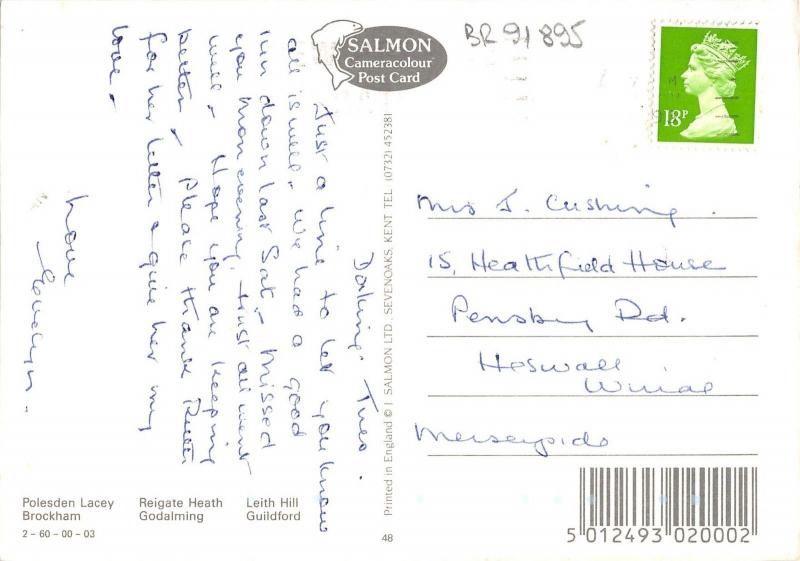 SALMON
Cameracolour
Post Card
BR 91 895
18P
Dorking. Tues.
Just a line to let you know
all is well. We had a good
run down last Sat. - Missed
you Mon evening, trust all went
well - Hope you are keeping
better - Please thank Ruth
for her letter & give her my
love -
Love
Evelyn.
Mrs J. Cushing.
15, Heathfield House
Pensby Rd.
Heswall
Wirral
Merseyside
Printed in England © J SALMON LTD., SEVENOAKS, KENT TEL (0732) 452381
Polesden Lacey Reigate Heath Leith Hill
Brockham Godalming Guildford
2 - 60 - 00 - 03
48
5 012493 020002